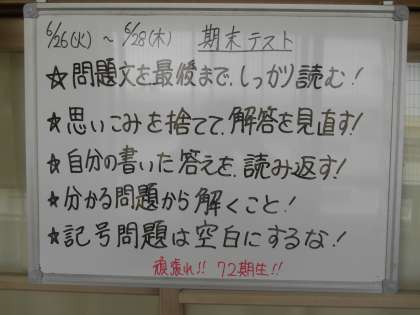 6/26(火) ~ 6/28(木) 期末テスト
☆問題文を最後まで、しっかり読む!
☆思いこみを捨てて、解答を見直す!
☆自分の書いた答えを、読み返す!
☆分かる問題から解くこと!
☆記号問題は空白にするな!
頑張れ!! 72期生!!